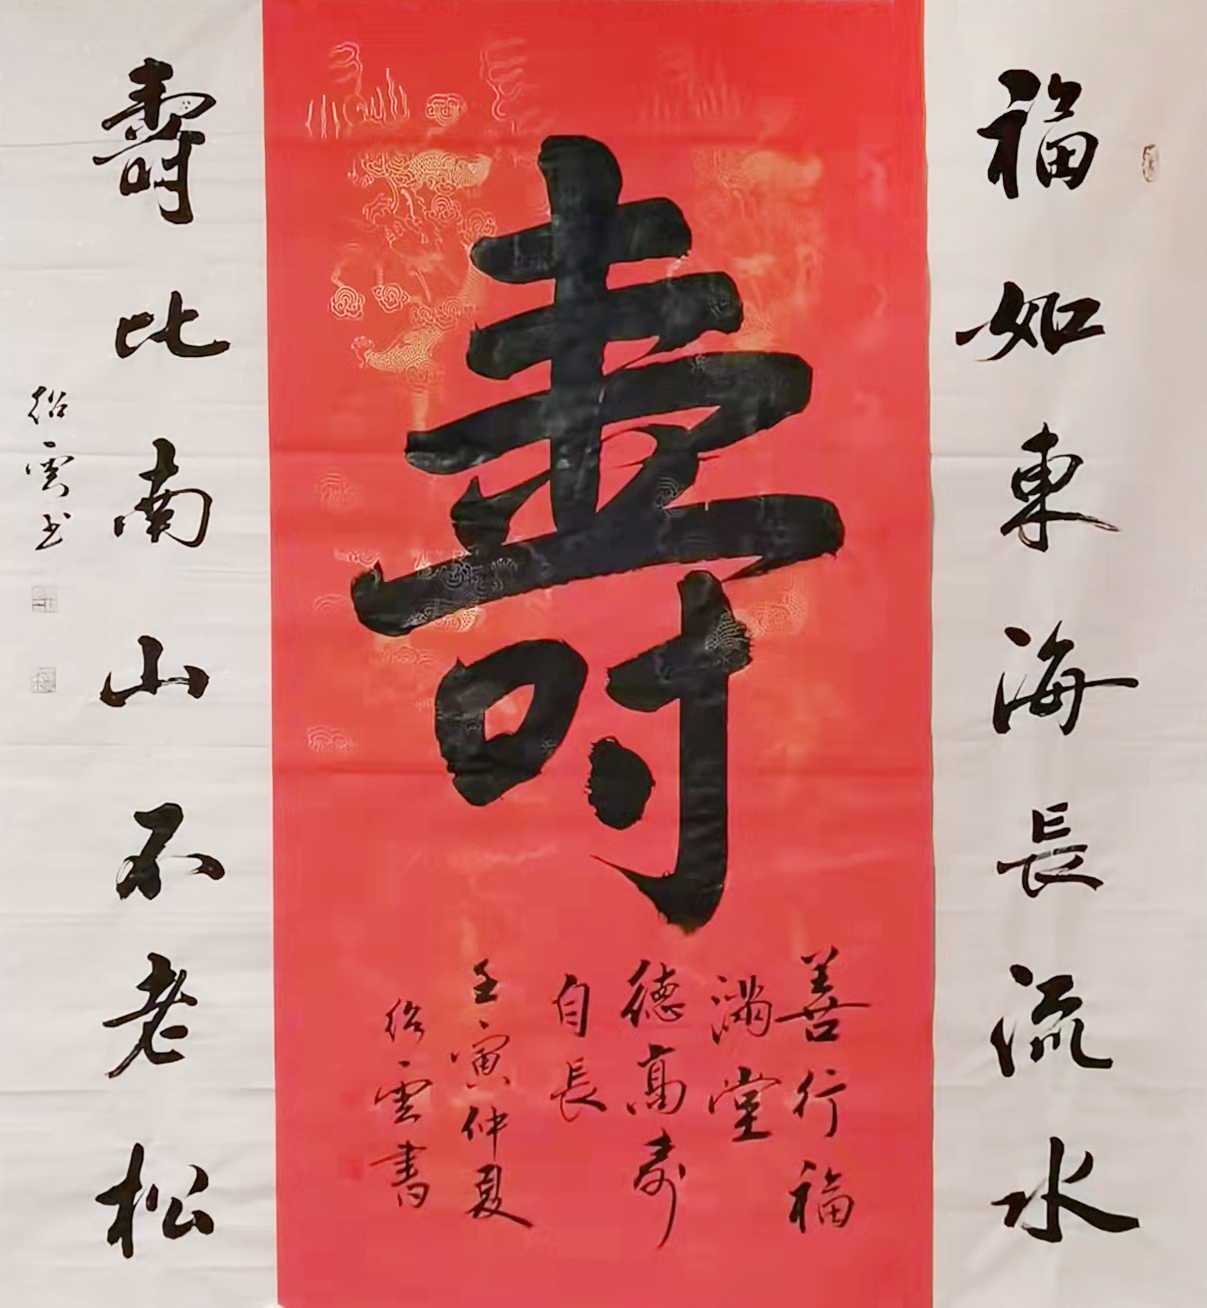 福如東海長流水
壽
善行福
滿堂
德高壽
自長
壬寅仲夏
紹雲書
壽比南山不老松
紹雲书